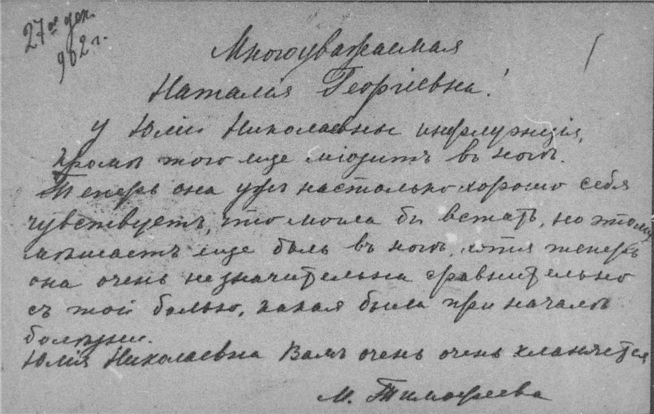 27го дек.
902 г.
Многоуважаемая
Наталія Георгіевна!
У Юліи Николаевны инфлуэнція,
кромѣ того еще міозитъ въ ногѣ.
Теперь она ужъ настолько хорошо себя
чувствуетъ, что могла бы встать, но этому
мѣшаетъ еще боль въ ногѣ, хотя теперь
она очень незначительна сравнительно
съ той болью, какая была при началѣ
болѣзни.
Юлія Николаевна Вамъ очень очень кланяется
М. Тимофеева